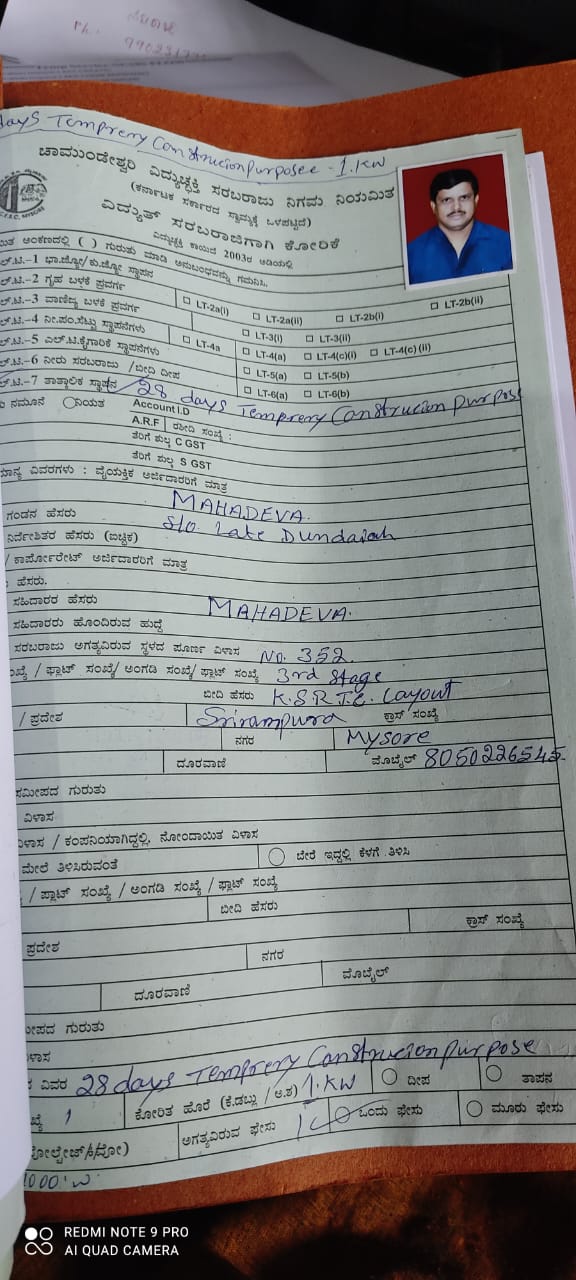 ಸರೋಜ
Ph.
days Temprery Construcion purposee - 1.KW
ಚಾಮುಂಡೇಶ್ವರಿ ವಿದ್ಯುಚ್ಛಕ್ತಿ ಸರಬರಾಜು ನಿಗಮ ನಿಯಮಿತ
(ಕರ್ನಾಟಕ ಸರ್ಕಾರದ ಸ್ವಾಮ್ಯಕ್ಕೆ ಒಳಪಟ್ಟಿದೆ)
ವಿದ್ಯುತ್ ಸರಬರಾಜಿಗಾಗಿ ಕೋರಿಕೆ
ವಿದ್ಯುಚ್ಛಕ್ತಿ ಕಾಯಿದೆ 2003ರ ಅಡಿಯಲ್ಲಿ
ಅಂಕಣದಲ್ಲಿ ( ) ಗುರುತು ಮಾಡಿ ಅನುಬಂಧವನ್ನು ಗಮನಿಸಿ.
ಲ್.ಟಿ.-1 ಭಾ.ಜ್ಯೋ/ಕು.ಜ್ಯೋ ಸ್ಥಾಪನ
ಲ್.ಟಿ.-2 ಗೃಹ ಬಳಕೆ ಪ್ರವರ್ಗ LT-2a(i) LT-2a(ii) LT-2b(i) LT-2b(ii)
ಲ್.ಟಿ.-3 ವಾಣಿಜ್ಯ ಬಳಕೆ ಪ್ರವರ್ಗ LT-3(i) LT-3(ii)
ಲ್.ಟಿ.-4 ನೀ.ಪಂ.ಸೆಟ್ಟು ಸ್ಥಾಪನೆಗಳು LT-4a LT-4(a) LT-4(c)(i) LT-4(c)(ii)
ಲ್.ಟಿ.-5 ಎಲ್.ಟಿ.ಕೈಗಾರಿಕೆ ಸ್ಥಾಪನೆಗಳು LT-5(a) LT-5(b)
ಲ್.ಟಿ.-6 ನೀರು ಸರಬರಾಜು /ಬೀದಿ ದೀಪ LT-6(a) LT-6(b)
ಲ್.ಟಿ.-7 ತಾತ್ಕಾಲಿಕ ಸ್ಥಾಪನ 28 days Temprery Construcion purpose
ನಮೂನೆ ನಿಯತ Account I.D
A.R.F ರಶೀದಿ ಸಂಖ್ಯೆ :
ತೆರಿಗೆ ಶುಲ್ಕ C GST
ತೆರಿಗೆ ಶುಲ್ಕ S GST
ಮಾನ್ಯ ವಿವರಗಳು : ವೈಯಕ್ತಿಕ ಅರ್ಜಿದಾರರಿಗೆ ಮಾತ್ರ
MAHADEVA.
ಗಂಡನ ಹೆಸರು S/o. Late Dundaiah
ನಿರ್ದೇಶಿತರ ಹೆಸರು (ಐಚ್ಛಿಕ)
/ ಕಾರ್ಪೋರೇಟ್ ಅರ್ಜಿದಾರರಿಗೆ ಮಾತ್ರ
ಹೆಸರು.
ಸಹಿದಾರರ ಹೆಸರು MAHADEVA.
ಸಹಿದಾರರು ಹೊಂದಿರುವ ಹುದ್ದೆ
ಸರಬರಾಜು ಅಗತ್ಯವಿರುವ ಸ್ಥಳದ ಪೂರ್ಣ ವಿಳಾಸ No. 352.
ಖ್ಯೆ / ಫ್ಲಾಟ್ ಸಂಖ್ಯೆ/ ಅಂಗಡಿ ಸಂಖ್ಯೆ/ ಫ್ಲಾಟ್ ಸಂಖ್ಯೆ 3rd Stage
ಬೀದಿ ಹೆಸರು K.S.R.T.C. Layout
/ ಪ್ರದೇಶ Srirampura ಕ್ರಾಸ್ ಸಂಖ್ಯೆ
ನಗರ Mysore
ದೂರವಾಣಿ ಮೊಬೈಲ್ 8050226545.
ಸಮೀಪದ ಗುರುತು
ವಿಳಾಸ
ವಿಳಾಸ / ಕಂಪನಿಯಾಗಿದ್ದಲ್ಲಿ, ನೋಂದಾಯಿತ ವಿಳಾಸ
ಮೇಲೆ ತಿಳಿಸಿರುವಂತೆ ಬೇರೆ ಇದ್ದಲ್ಲಿ ಕೆಳಗೆ ತಿಳಿಸಿ
/ ಪ್ಲಾಟ್ ಸಂಖ್ಯೆ / ಅಂಗಡಿ ಸಂಖ್ಯೆ / ಫ್ಲಾಟ್ ಸಂಖ್ಯೆ
ಬೀದಿ ಹೆಸರು
ಕ್ರಾಸ್ ಸಂಖ್ಯೆ
ಪ್ರದೇಶ
ನಗರ
ದೂರವಾಣಿ ಮೊಬೈಲ್
ಮೀಪದ ಗುರುತು
ಳಾಸ
ವಿವರ 28 days Temprery Construcion purpose
ಖ್ಯೆ 1 ಕೋರಿತ ಹೊರೆ (ಕೆ.ಡಬ್ಲು / ಅ.ಶ) 1.KW ದೀಪ ತಾಪನ
ಅಗತ್ಯವಿರುವ ಫೇಸು ಒಂದು ಫೇಸು ಮೂರು ಫೇಸು
1000 W
REDMI NOTE 9 PRO
AI QUAD CAMERA